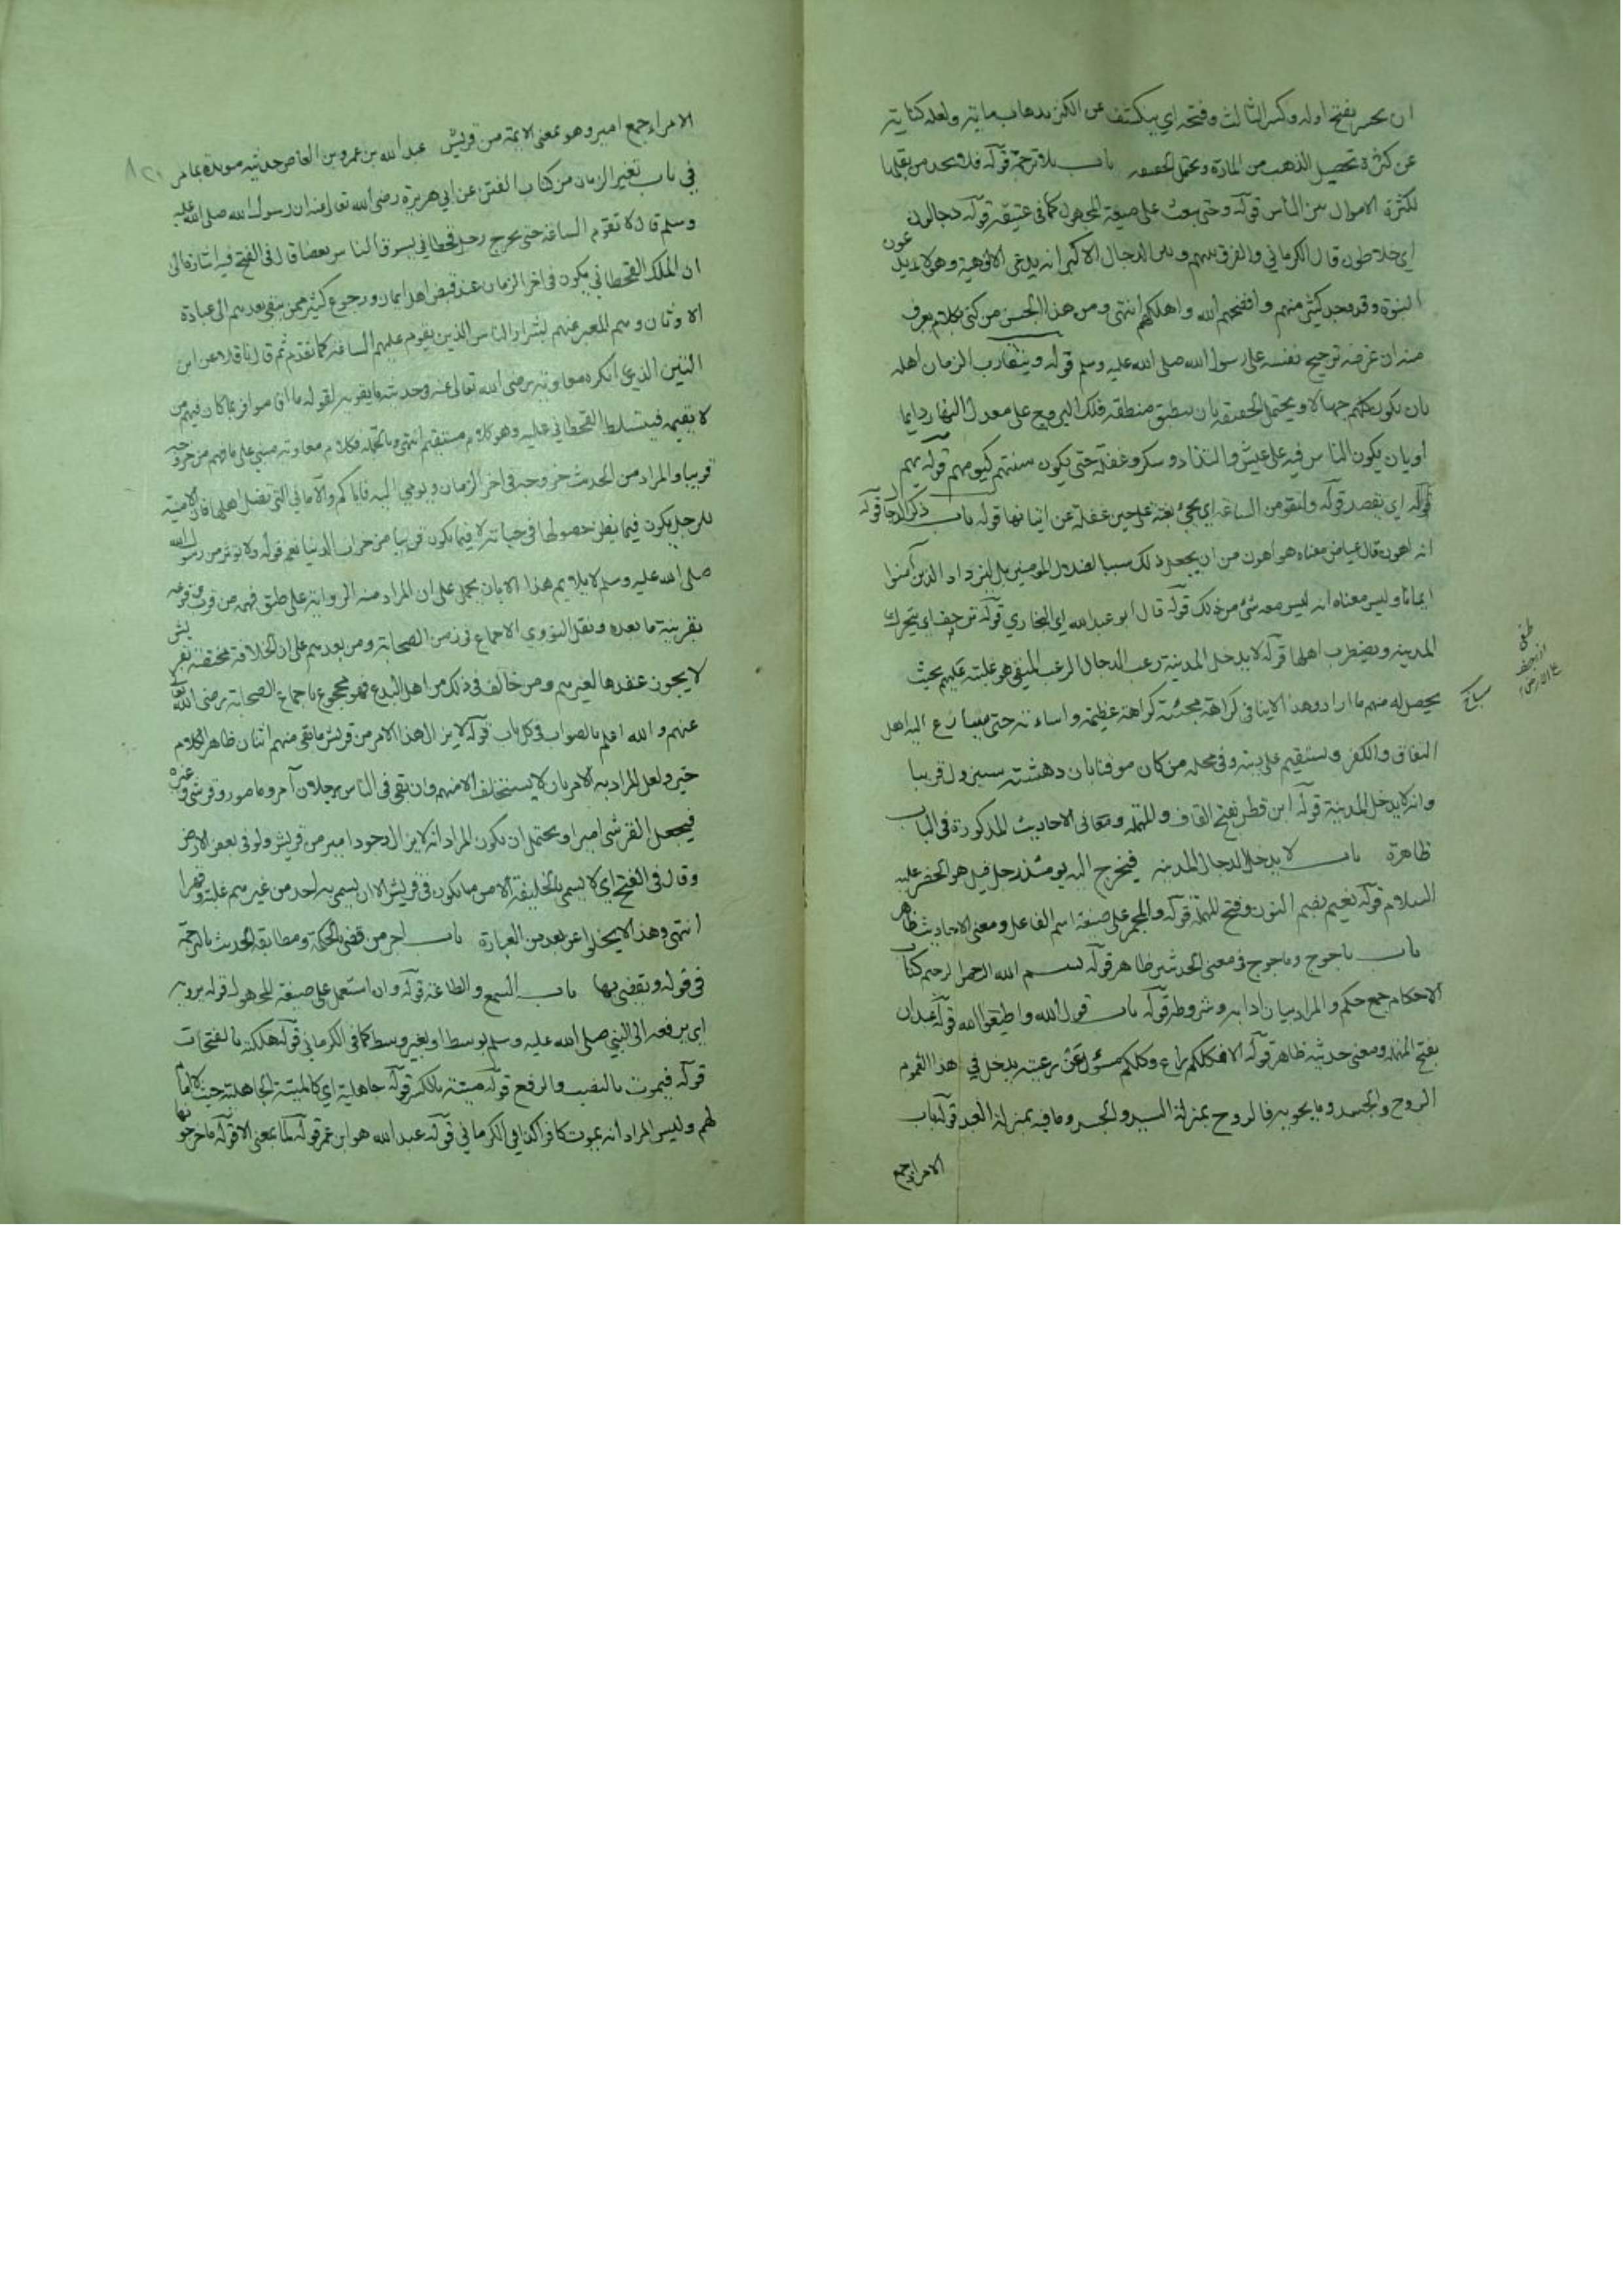 ان يحسر بفتح اوله وكسر الثالث وفتحه اي ينكشف عن الكنز بذهاب مائه ولعله كناية
عن كثرة تحصيل الذهب من المارة ويحتمل الحقيقة باب بلا ترجمة قوله فلا يجد من يقبلها
لكثرة الاموال بين الناس قوله وحتى يبعث على صيغة المجهول كما في عتيقة قوله دجالون
اي خلاطون قال الكرماني والفرق بينهم وبين الدجال الاكبر انه يدعي الالوهية وهؤلاء يدعون
النبوة وقد وجد كثير منهم وافضحهم الله واهلكهم انتهى ومن هذا الجنس من كلامه يعرف
منه ان غرضه ترجيح نفسه على رسول الله صلى الله عليه وسلم قوله ويتقارب الزمان اهله
بان يكون كلهم جهالا ويحتمل الحقيقة بان ينطبق منطقة فلك البروج على معدل النهار دايما
او بان يكون الناس فيه على عيش والتذاذ وسكر وغفلة حتى يكون سنتهم كيومهم قوله يهم
قوله اي يقصد قوله ولتقومن الساعة اي يجيء بغتة على حين غفلة عن اتيانها قوله باب ذكر الدجال قوله
انه اهون قال عياض معناه هو اهون من ان يجعل ذلك سببا لضلال المومنين بل ليزداد الذين آمنوا
ايمانا وليس معناه انه ليس معه شئ من ذلك قوله قال ابو عبد الله اي البخاري قوله ترجف اي يتحرك
المدينة ويضطرب اهلها قوله لا يدخل المدينة رعب الدجال الرعب المنفي هو غلبته عليهم بحيث
يحصل له منهم ما اراد وهذا لا ينافي كراهة مجيئه كراهة عظيمة واساءته حتى يسارع اليه اهل
النفاق والكفر ويستقيم على دينه وفي محله من كان موقنا بان دهشته سيزول قريبا
وانه لا يدخل المدينة قوله ابن قطن بفتح القاف والمهملة ومعاني الاحاديث المذكورة في الباب
ظاهرة باب لا يدخل الدجال المدينة فيخرج اليه يومئذ رجل قيل هو الخضر عليه
السلام قوله نعيم بضم النون وفتح المهملة قوله والمجمر على صيغة اسم الفاعل ومعنى الاحاديث ظاهر
باب ياجوج وماجوج في معنى الحديث ظاهر قوله بسم الله الرحمن الرحيم كتاب
الاحكام جمع حكم والمراد بيان آدابه وشروطه قوله باب قول الله واطيعوا الله قوله عبدان
بفتح المهملة ومعنى حديثه ظاهر قوله الا فكلكم راع وكلكم مسئول عن رعيته يدخل في هذا العموم
الروح والجسد وما يحويه فالروح بمنزلة السيد والجسد وما فيه بمنزلة العبد قوله باب
الامراء جمع
الامراء جمع امير وهو بمعنى الائمة من قريش عبد الله بن عمرو بن العاص حديثه مويدة بما مر
في باب تغير الزمان من كتاب الفتن عن ابي هريرة رضى الله تعالى عنه ان رسول الله صلى الله عليه
وسلم قال لا تقوم الساعة حتى يخرج رجل قحطاني يسوق الناس بعصا قال في الفتح فيه اشارة الى
ان الملك القحطاني يكون في اخر الزمان عند قبض اهل ايمان ورجوع كثير ممن يبقى بعدهم الى عبادة
الاوثان وهم المعبر عنهم بشرار الناس الذين يقوم عليهم الساعة كما تقدم ثم قال ناقلا عن ابن
التين الذي انكره معاوية رضى الله تعالى عنه وحديثه ما يقويه لقوله ما اقاموا فربما كان فيهم من
لا يقيمه فيتسلط القحطاني عليه وهو كلام مستقيم انتهى وبالجملة فكلام معاوية مبني على ما فهم من خروجه
قريبا والمراد من الحديث خروجه في اخر الزمان ويومي اليه فاياكم والاماني التي تضل اهلها فان الامنية
للرجل يكون فيما يظن حصولها في حياته لا فيما يكون قريبا من خراب الدنيا نعم قوله ولا توثر من رسول الله
صلى الله عليه وسلم لا يلايم هذا الا بان يحمل على ان المراد منه الرواية على طبق فهمه من قرب وقوعه
بقرينة ما بعده ونقل النووي الاجماع في زمن الصحابة ومن بعدهم على ان الخلافة مختصة بقريش
لا يجوز عقدها لغيرهم ومن خالف في ذلك من اهل البدع فهو محجوج باجماع الصحابة رضى الله تعالى
عنهم والله اعلم بالصواب في كل باب قوله لا يزال هذا الامر من قريش ما بقى منهم اثنان ظاهر الكلام
خبر ولعل المراد به الامر بان لا يستخلف الا منهم وان بقى في الناس رجلان آمر ومامور وقرشي وغيره
فيجعل القرشي اميرا ويحتمل ان يكون المراد انه لا يزال وجود امير من قريش ولو في بعض الارض
وقال في الفتح اي لا يسمى بالخليفة الا من يكون في قريش الا ان يسمى به احد من غيرهم غلبة وقهرا
انتهى وهذا لا يخلوا عن بعد من العبارة باب اجر من قضى بالحكمة ومطابقة الحديث بالترجمة
في قوله ويقضي بها باب السمع والطاعة قوله وان استعمل على صيغة المجهول قوله يرويه
اي يرفعه الى النبي صلى الله عليه وسلم بوسط او بغير وسط كما في الكرماني قوله هلكة بالفتحات
قوله فيموت بالنصب والرفع قوله ميتة بالكسر قوله جاهلية اي كالميتة الجاهلية حيث لا امام
لهم وليس المراد انه يموت كافرا كذا في الكرماني قوله عبد الله هو ابن عمر قوله لما بمعنى الا قوله ما خرجوا منها